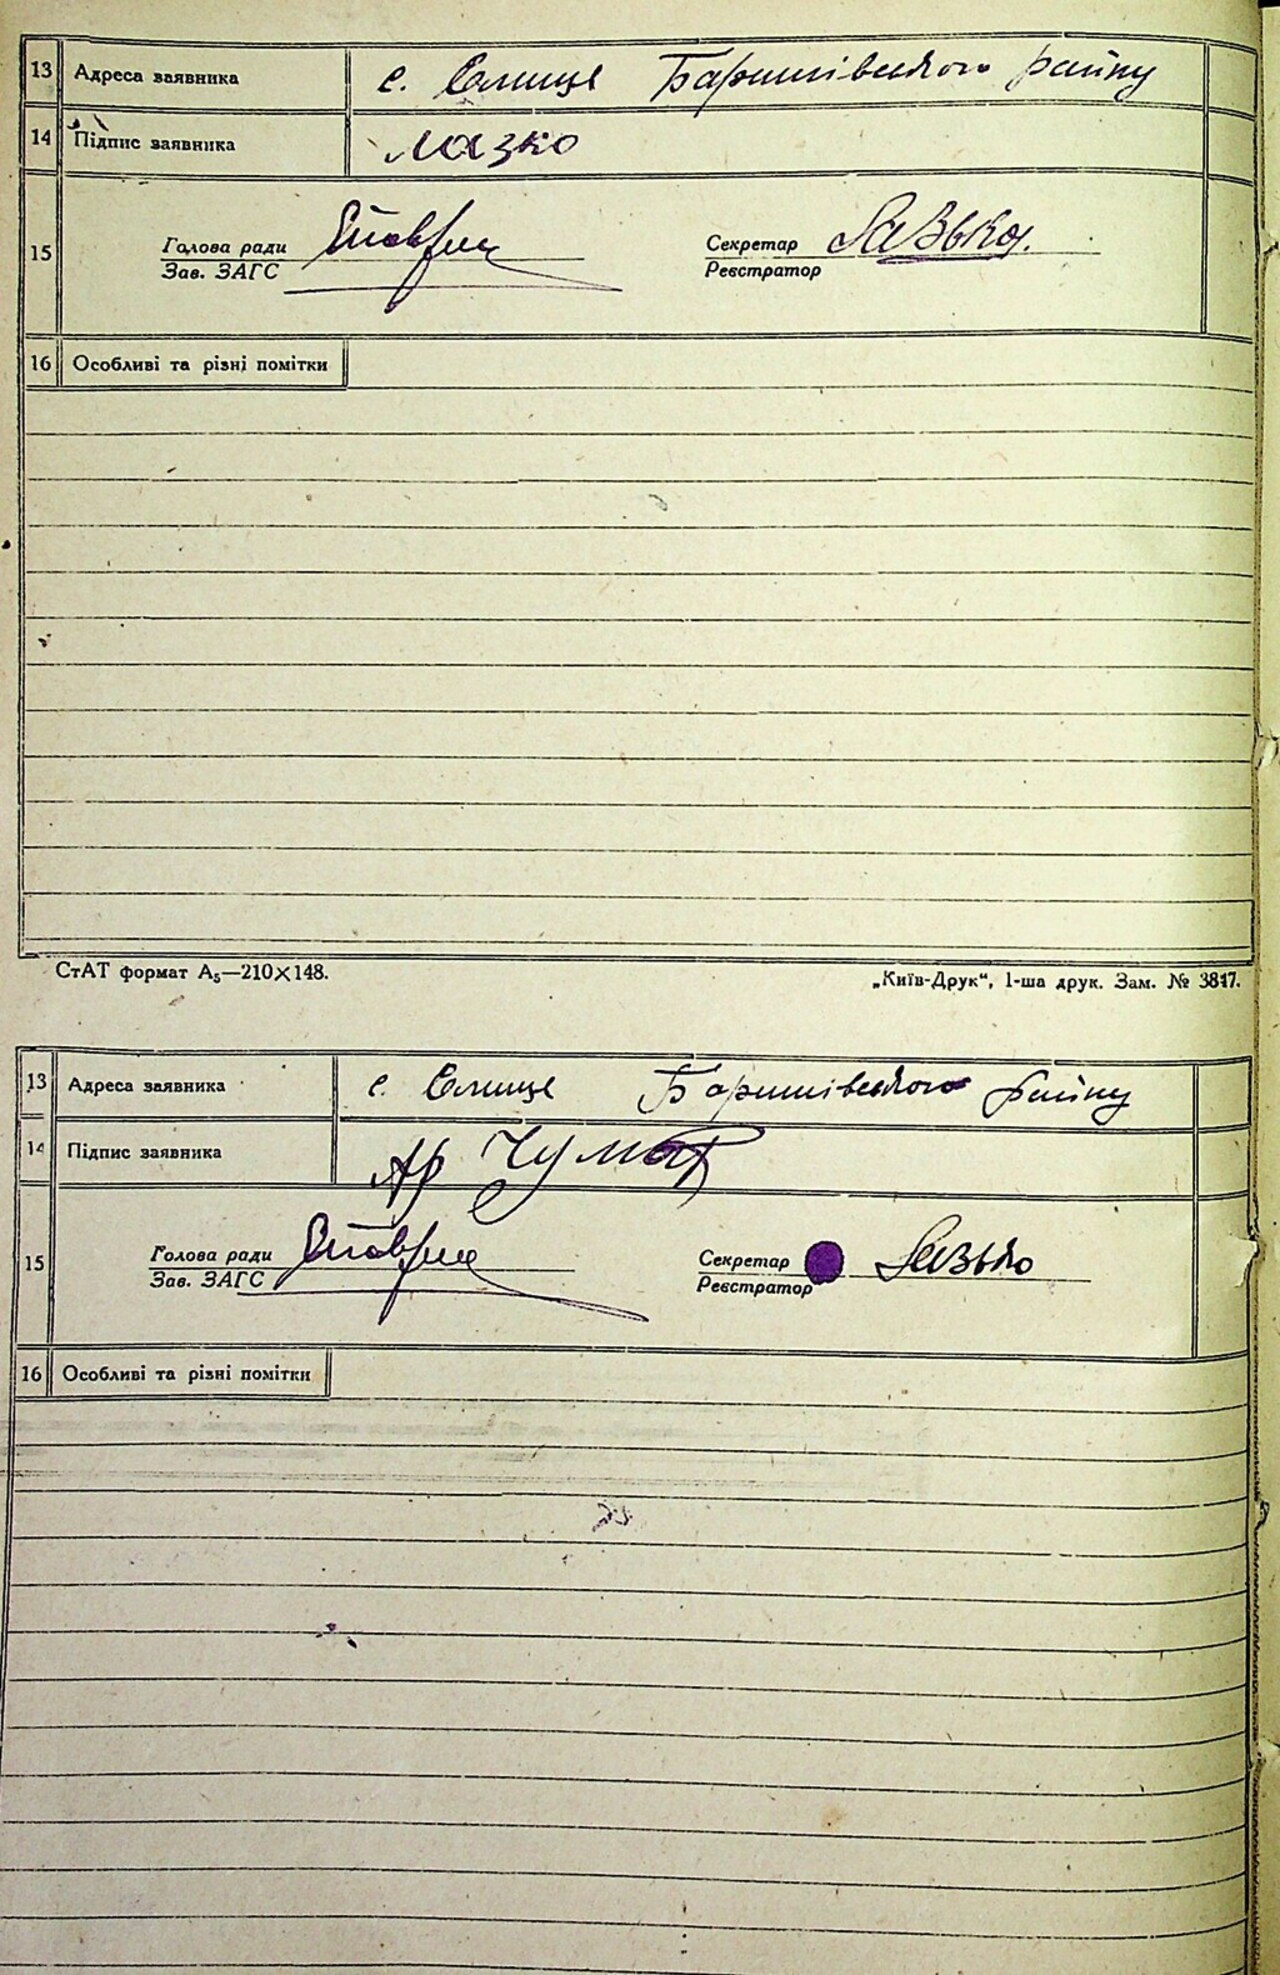 13 Адреса заявника с. Селище Баришівського району
14 Підпис заявника Лазко
15 Голова ради Секретар
Зав. ЗАГС Реєстратор
16 Особливі та різні помітки
СтАТ формат А5—210×148. „Київ-Друк“, 1-ша друк. Зам. № 3817.
13 Адреса заявника с. Селище Баришівського району
14 Підпис заявника Ар Чумак
15 Голова ради Секретар
Зав. ЗАГС Реєстратор
16 Особливі та різні помітки